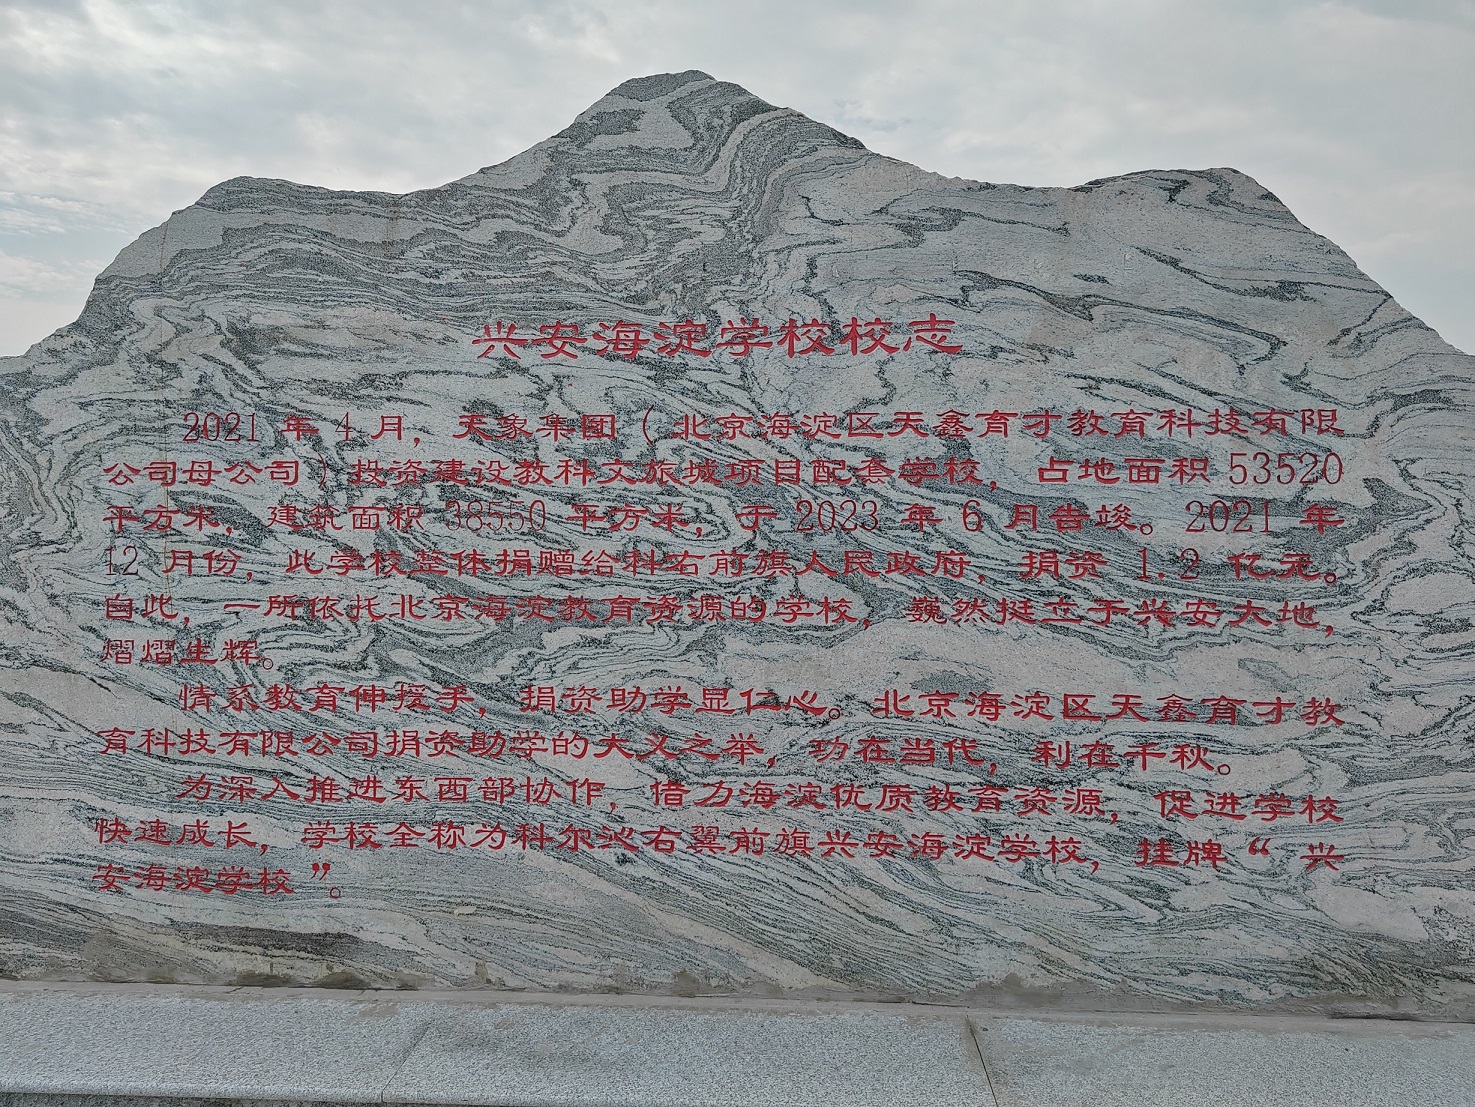 兴安海淀学校校志
2021 年 4 月，天象集团（北京海淀区天鑫育才教育科技有限
公司母公司）投资建设教科文旅城项目配套学校，占地面积 53520
平方米，建筑面积 38550 平方米，于 2023 年 6 月告竣。2021 年
12 月份，此学校整体捐赠给科右前旗人民政府，捐资 1.2 亿元。
自此，一所依托北京海淀教育资源的学校，巍然挺立于兴安大地，
熠熠生辉。
情系教育伸援手，捐资助学显仁心。北京海淀区天鑫育才教
育科技有限公司捐资助学的大义之举，功在当代，利在千秋。
为深入推进东西部协作，借力海淀优质教育资源，促进学校
快速成长，学校全称为科尔沁右翼前旗兴安海淀学校，挂牌“兴
安海淀学校”。